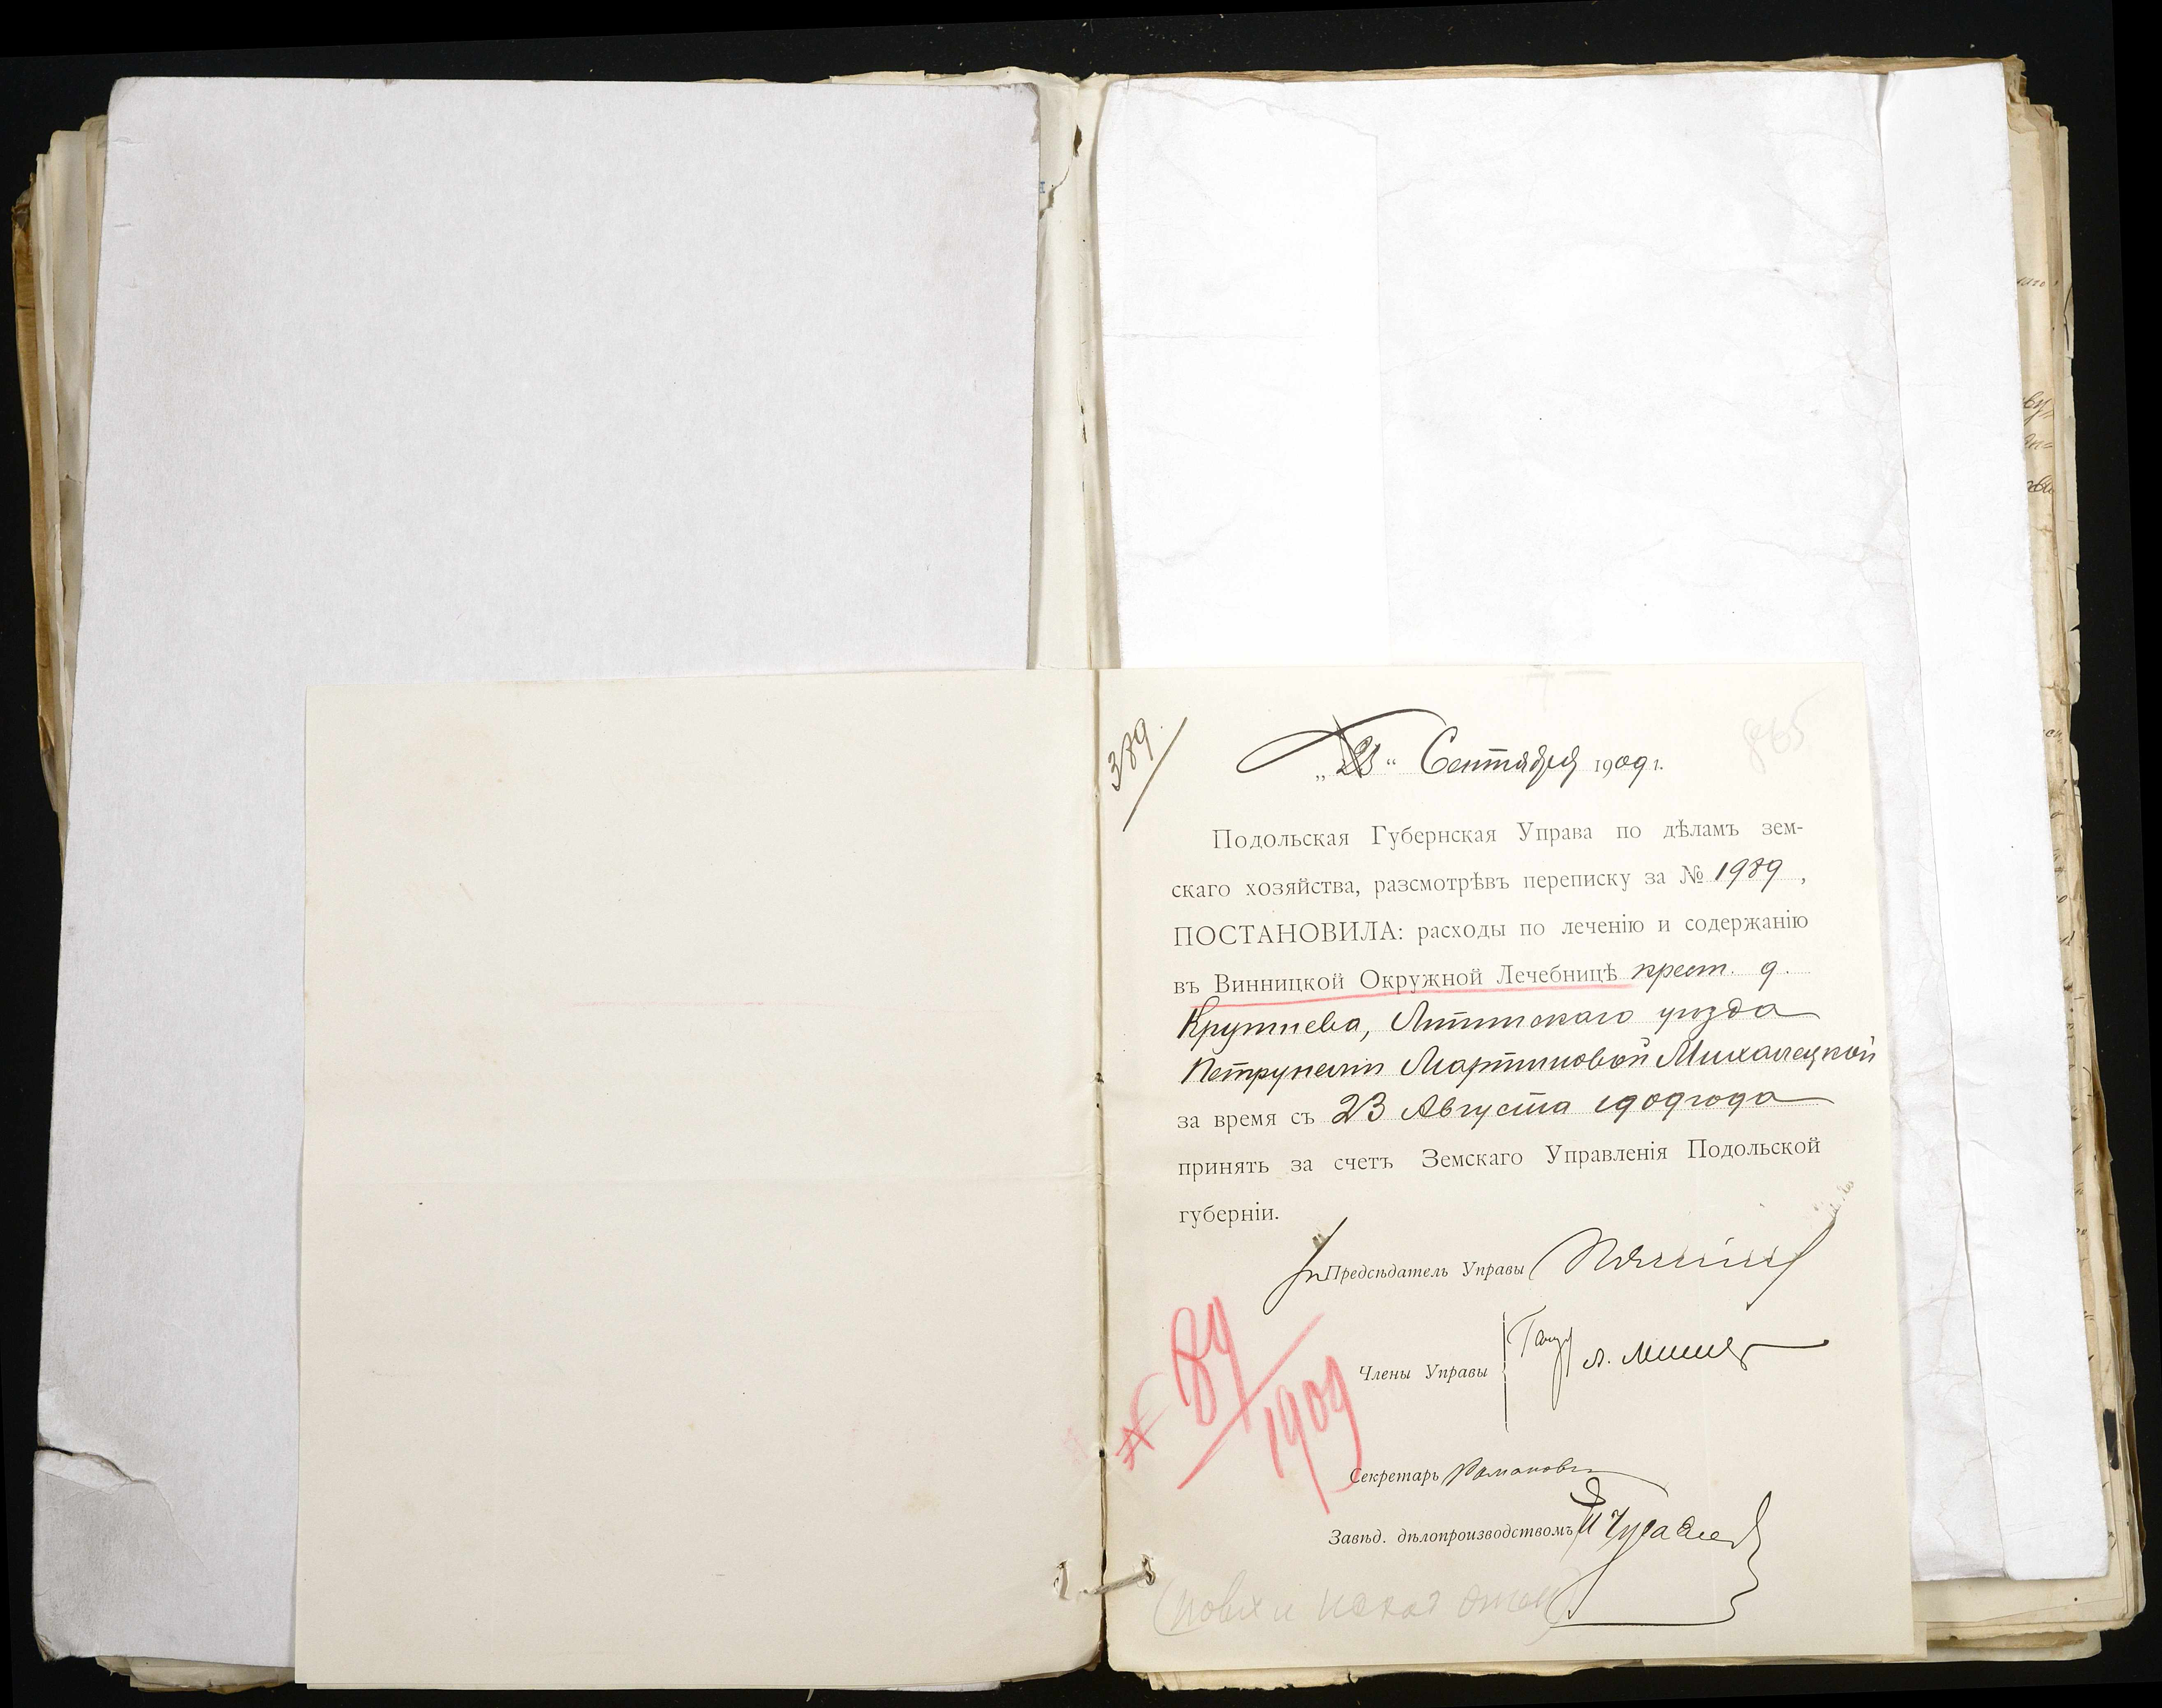 389.
„23“ Сентября 1909 г.
Подольская Губернская Управа по дѣламъ зем-
скаго хозяйства, разсмотрѣвъ переписку за № 1989,
ПОСТАНОВИЛА: расходы по леченію и содержанію
въ Винницкой Окружной Лечебницѣ крест. д.
Крутнева, Литинскаго уѣзда
Петрунели Мартиновой Михалецкой
за время съ 23 Августа 1909 года
принять за счетъ Земскаго Управленія Подольской
губерніи.
Предсѣдатель Управы
Члены Управы
№ 89/1909
Секретарь Романов
Завѣд. дѣлопроизводствомъ